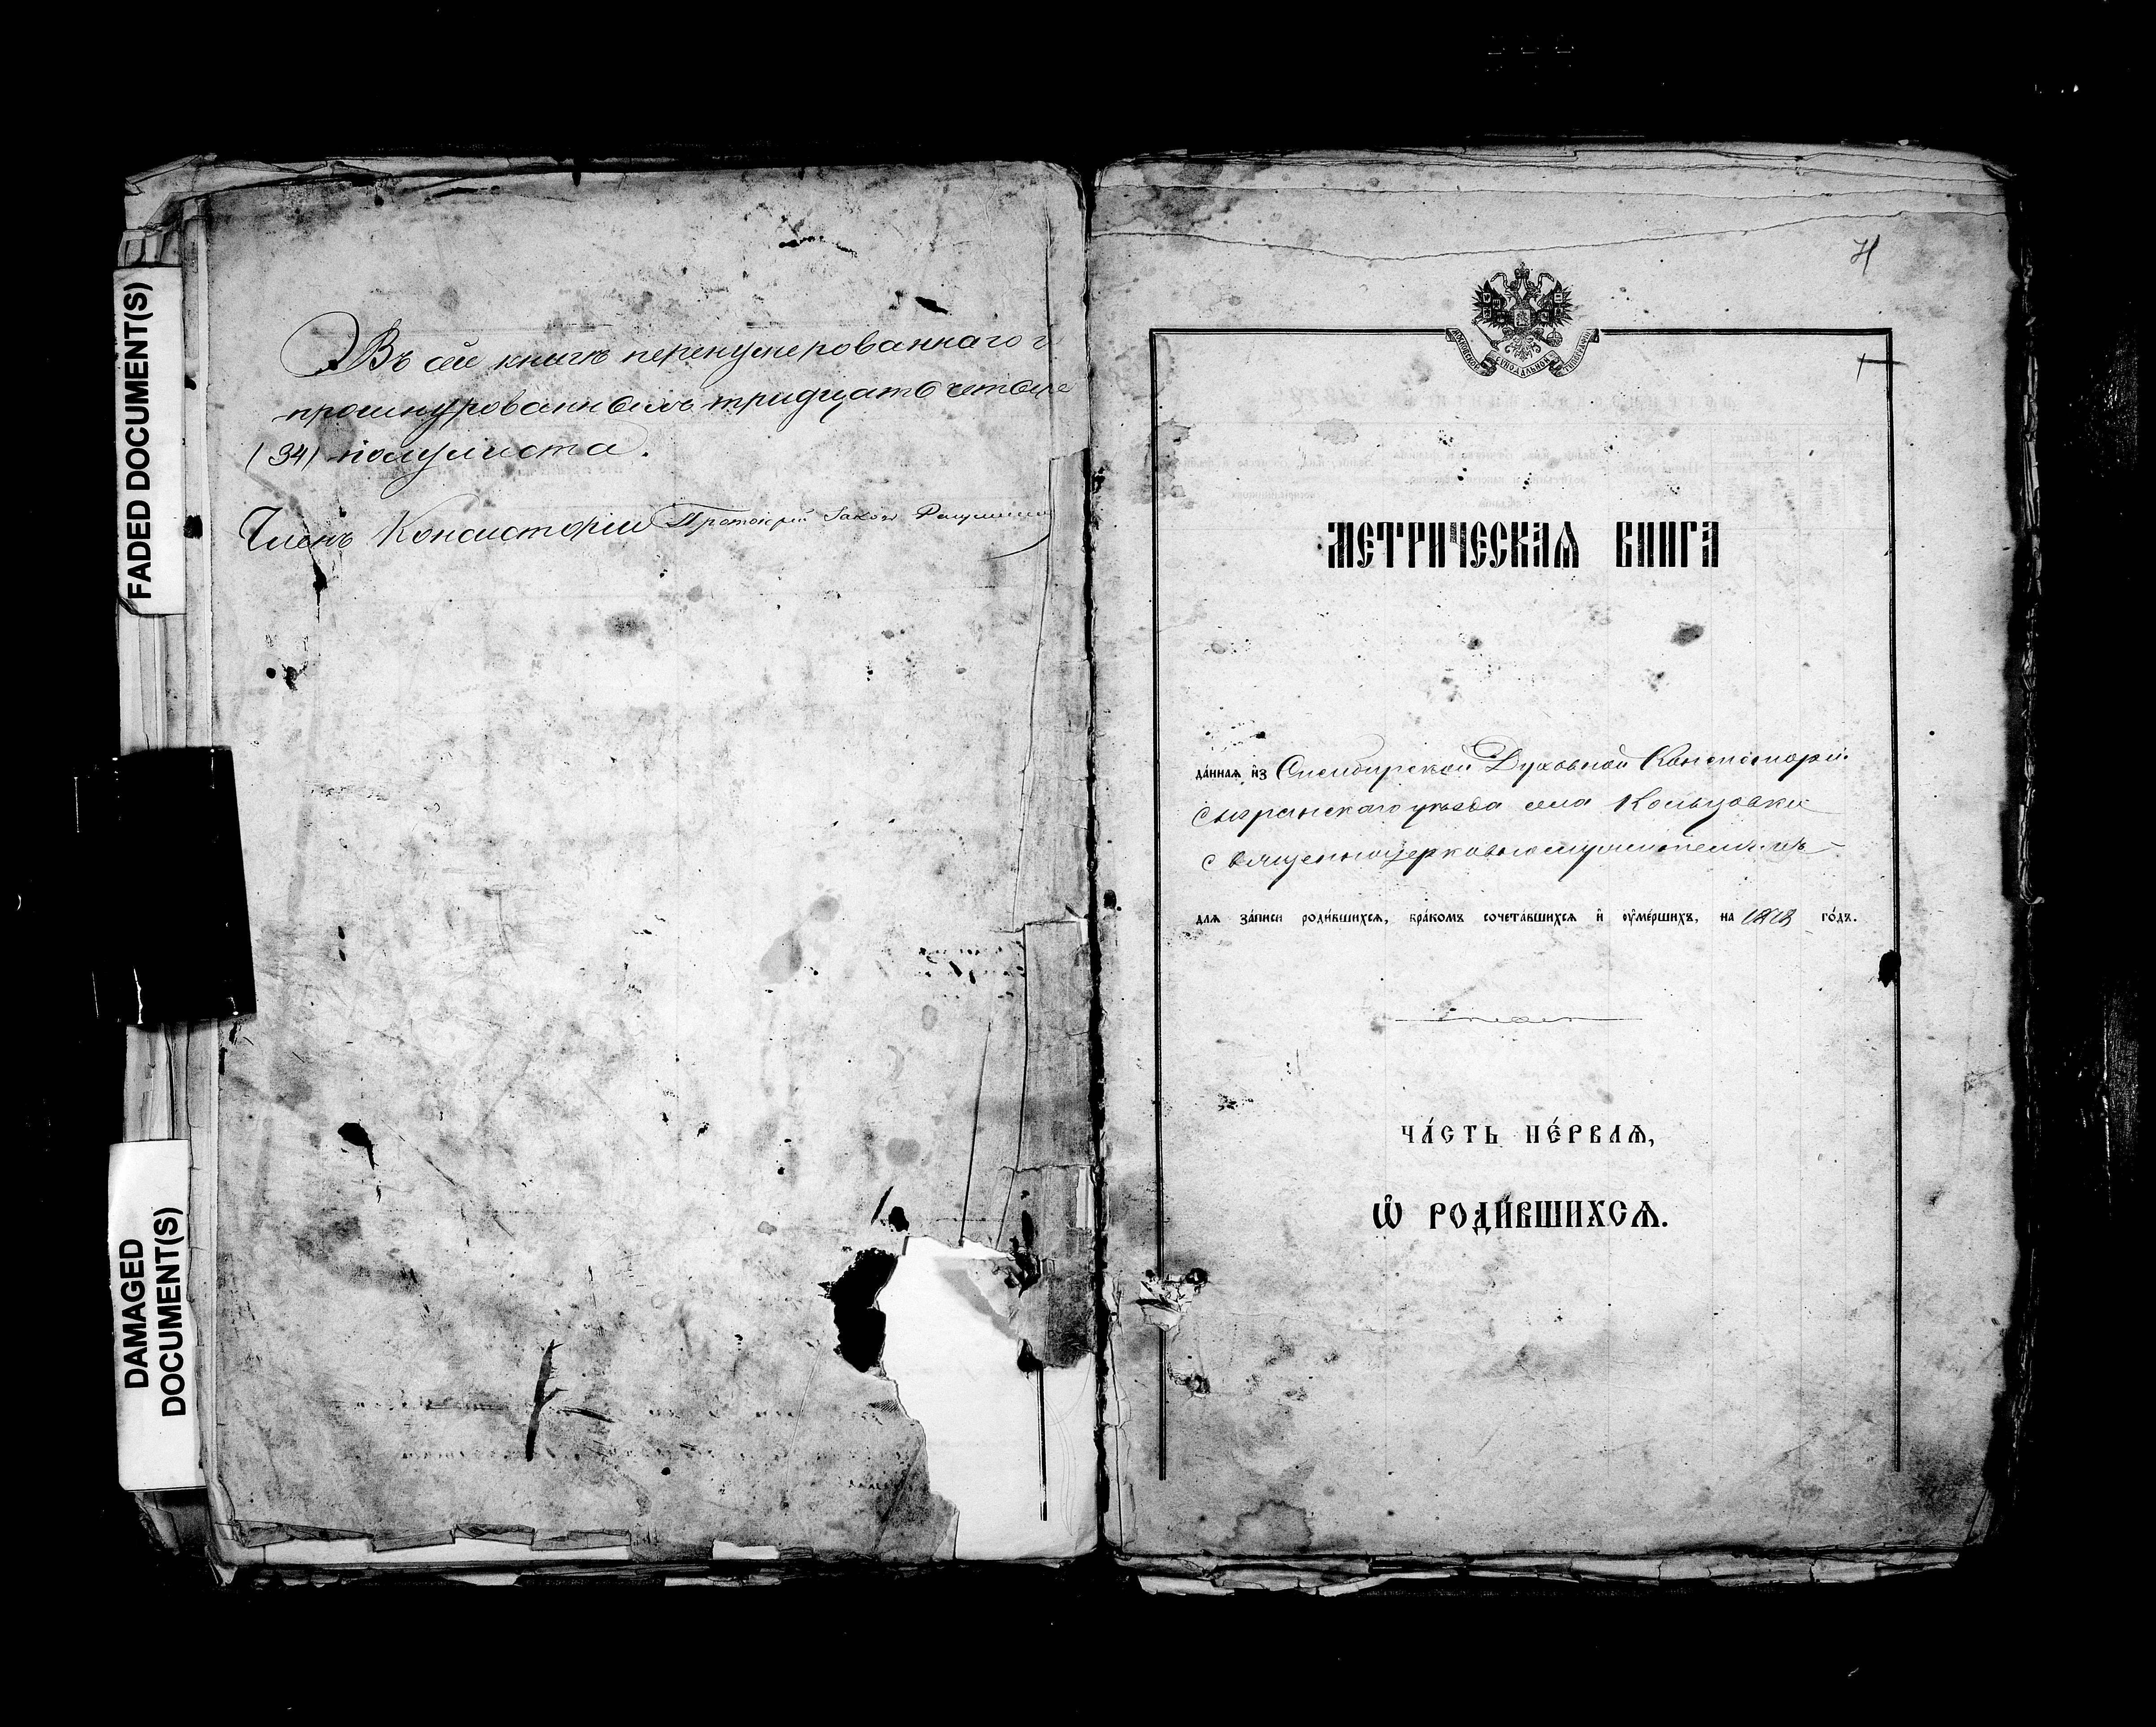 FADED DOCUMENT(S)
DAMAGED
DOCUMENT(S)
Въ сей книгѣ перенумерованнаго и
прошнурованныхъ тридцать четыре
(34) полулиста.
Членъ Консисторіи Протоіерей
МЕТРИЧЕСКАѦ КНИГА
МОСКОВСКОЙ СѴНОДАЛЬНОЙ ТИПОГРАФІИ
да́ннаѧ и҆з Симбирской Духовной Консисторіи
Сызранскаго уѣзда села Кольцовки
священноцерковнослужителямъ
длѧ за́писи роди́вшихсѧ, бра́комъ сочета́вшихсѧ и҆ ѹ҆ме́ршихъ, на го́дъ.
ЧА́СТЬ ПЕ́РВАѦ,
Ѡ҆ РОДИ́ВШИХСѦ.